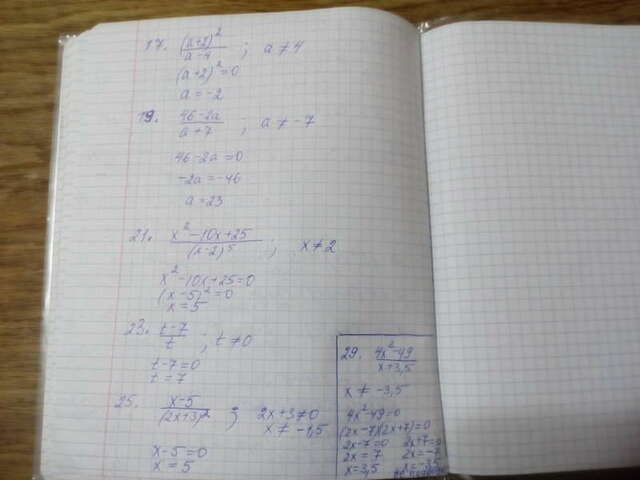 17. (a+2)² / a-4 ; a ≠ 4
(a+2)² = 0
a = -2
19. 46-2a / a+7 ; a ≠ -7
46-2a=0
-2a=-46
a=23
21. x²-10x+25 / (x-2)⁵ ; x≠2
x²-10x+25=0
(x-5)²=0
x=5
23. t-7 / t ; t≠0
t-7=0
t=7
25. x-5 / (2x+3)² ; 2x+3≠0
x ≠ -1,5
x-5=0
x=5
29. 4x²-49 / x+3,5
x ≠ -3,5
4x²-49=0
(2x-7)(2x+7)=0
2x-7=0 2x+7=0
2x=7 2x=-7
x=3,5 x=-3,5